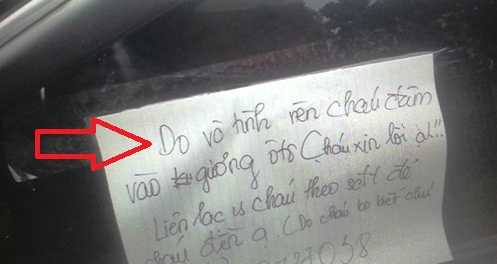 Do vô tình nên cháu đâm
vào gương ôtô Cháu xin lỗi ạ!..
Liên lạc vs cháu theo số đt đó
cháu đền ạ (Do cháu ko biết chủ
7038